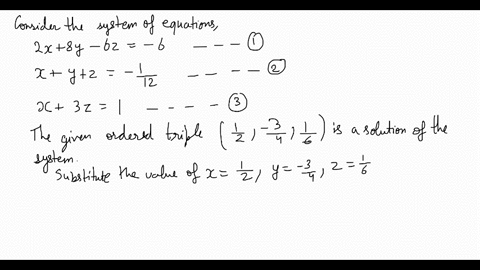 Consider the system of equations,
2x+8y-6z = -6 --- ①
x+y+z = -1/12 ---- ②
x+ 3z = 1 ---- ③
The given ordered triple (1/2, -3/4, 1/6) is a solution of the
system.
Substitute the value of x= 1/2, y= -3/4, z= 1/6